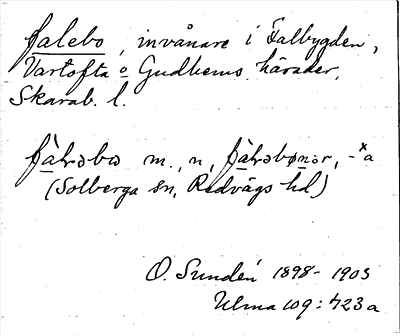 falebo, invånare i Falbygden,
Vartofta o Gudhems härader,
Skarab. l.
m., n,
(Solberga sn, Redvägs hd)
O. Sundén 1898-1903
Ulma 109:423a